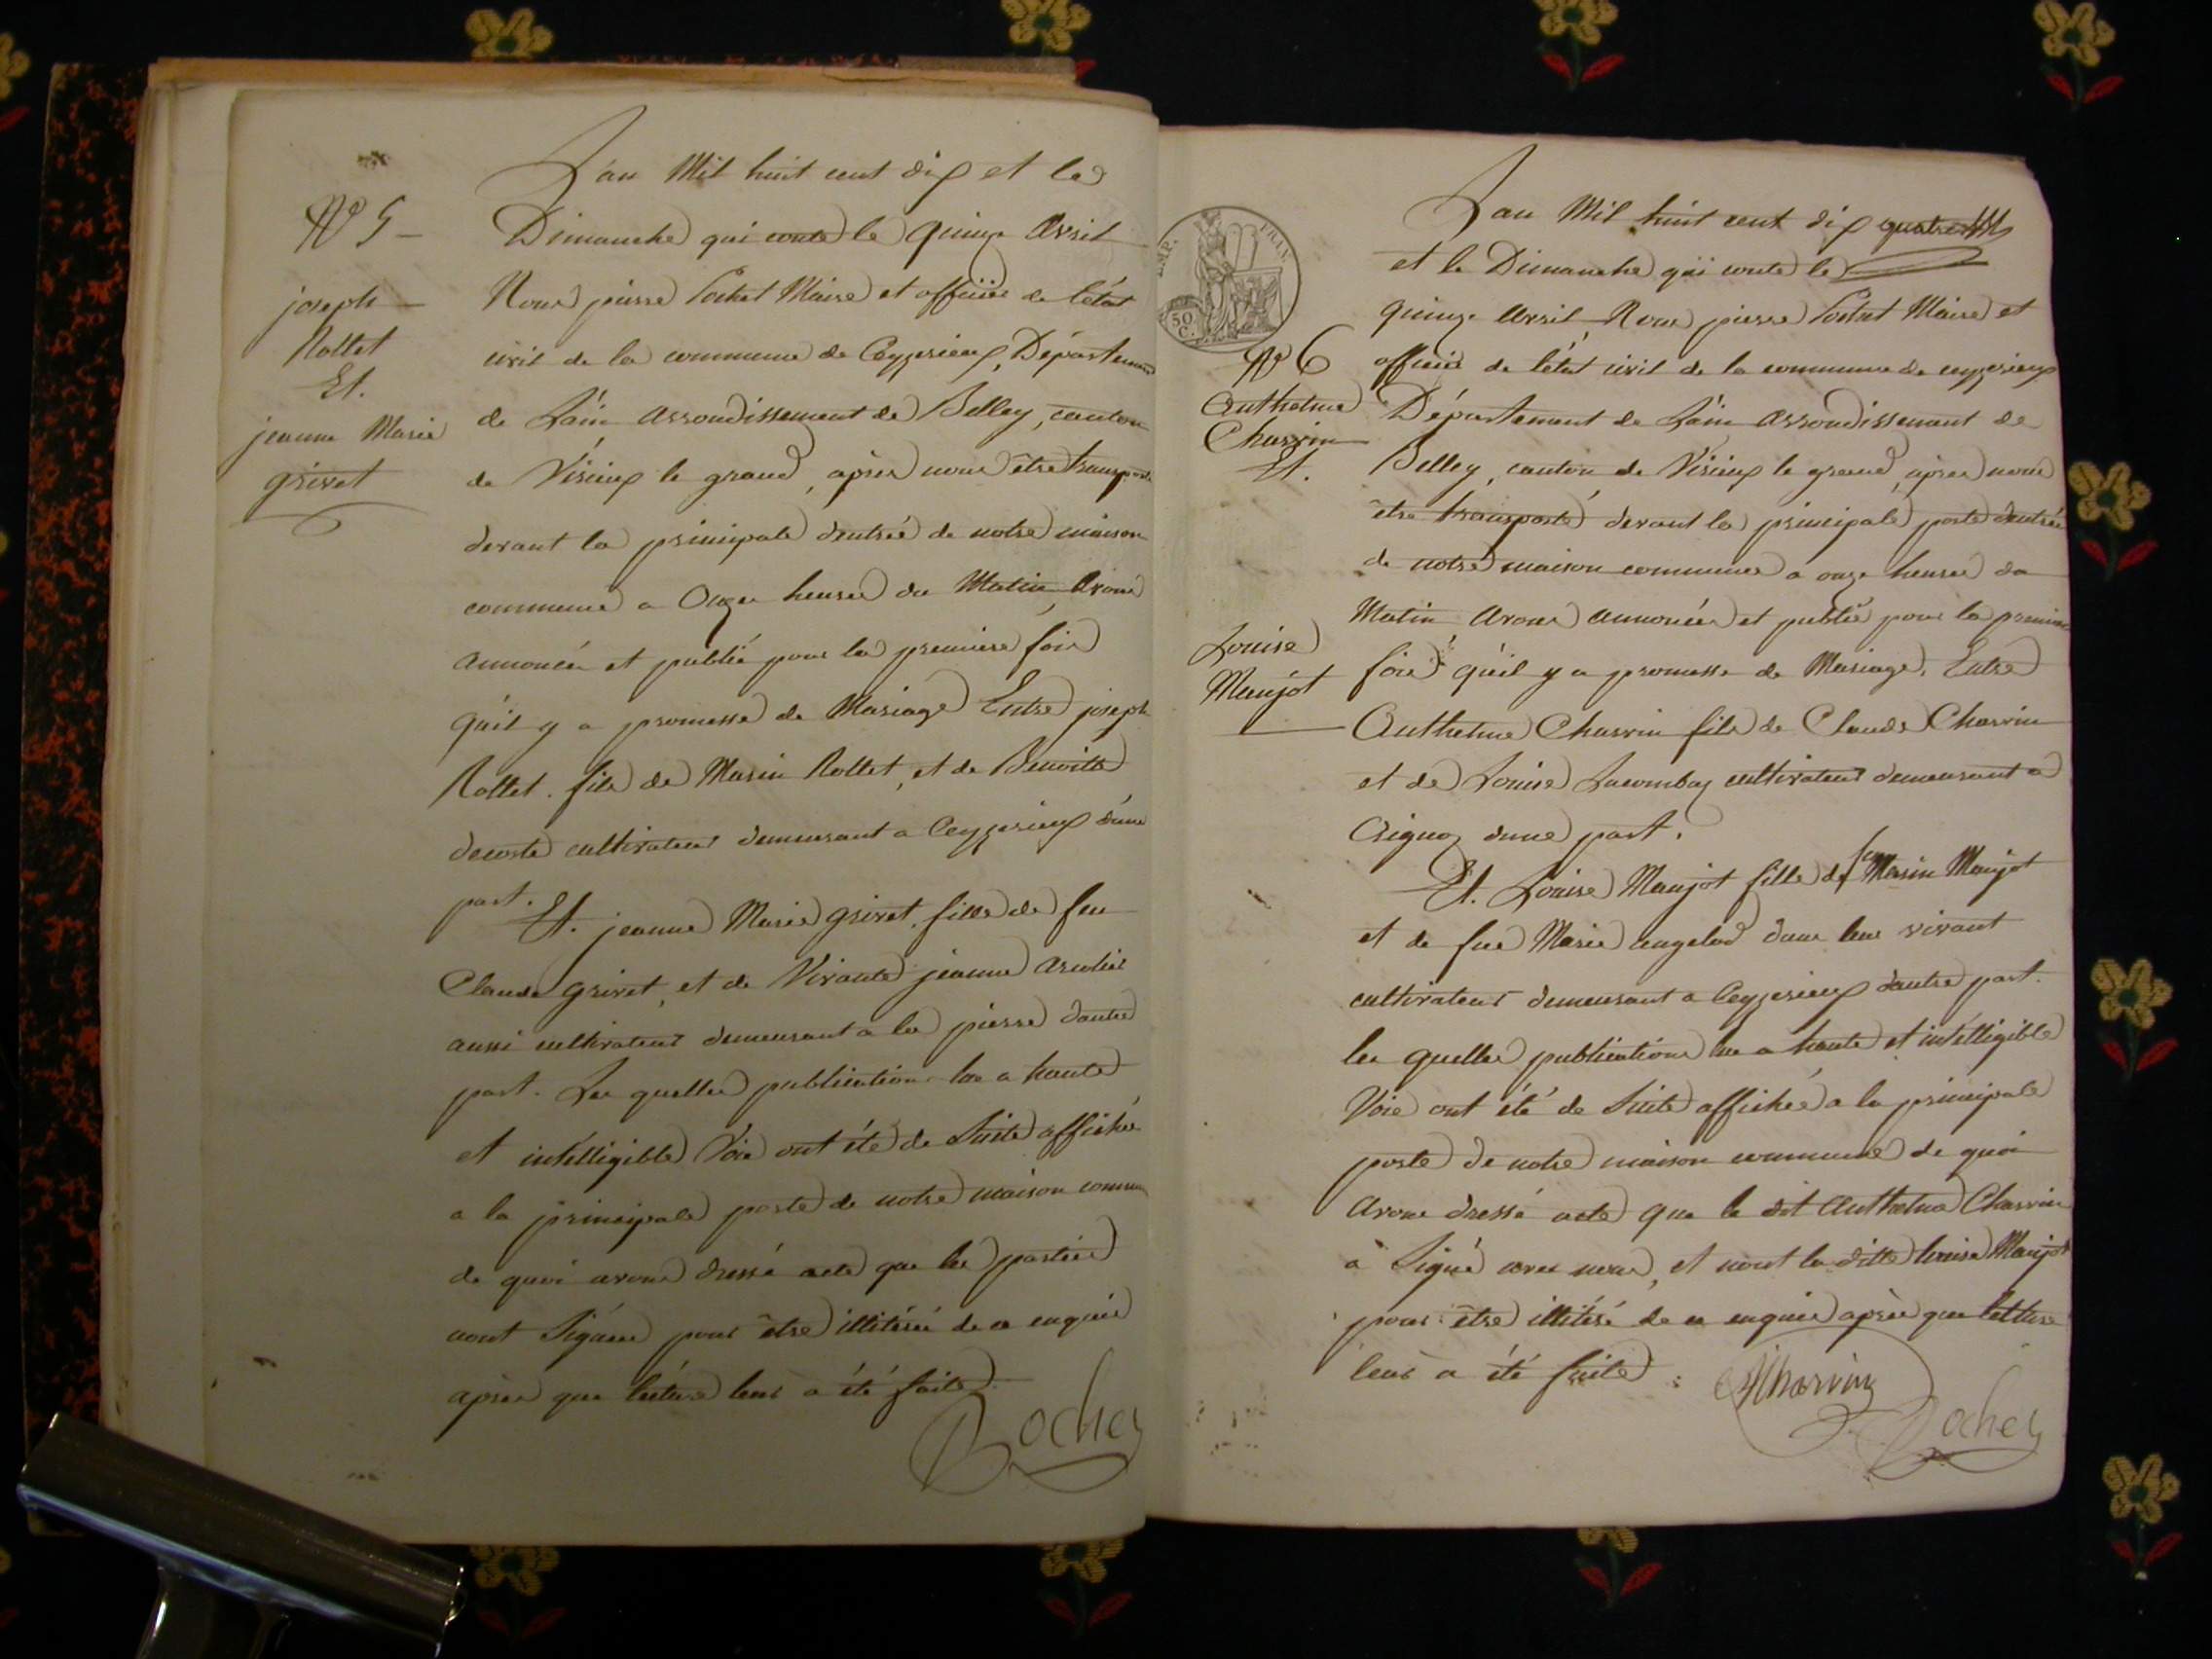 N° 5
joseph
Rollet
Et.
jeanne Marie
grivet
L'an Mil huit cent dix et le
Dimanche qui conte le quinze Avril
Nous pierre Maire et officier de l'état
civil de la commune de Ceyzerieux, Département
de L'ain arrondissement de Belley, canton
de Virieux le grand, après nous être transporté
devant la principale d'entrée de notre maison
commune a Onze heures du Matin, Avons
annoncée et publié pour la première fois
qu'il y a promesse de Mariage Entre joseph
Rollet. fils de Marin Rollet, et de Benoitte
decoste cultivateur demeurant a Ceyzerieux d'une
part.
Et. jeanne Marie grivet. fille de feu
Claude grivet, et de Vivante jeanne
aussi cultivateur demeurant a la pierre d'autre
part. Les quelles publications lue a haute
et intelligible Voie ont été de Suite affichée
a la principale porte de notre maison commune
de quoi avons dressé acte que les parties
nont Signées pour être illitéré de ce enquie
après que lecture leur a été faite
Bochet
EMP. FRAN.
50
C.
N° 6
Anthelme
Charvin
Et.
Louise
Maujot
L'an Mil huit cent dix quatre
et le Dimanche qui conte le
quinze Avril Nous pierre Maire et
officier de l'état civil de la commune de ceyzerieux
Département de L'ain arrondissement de
Belley, canton de Virieux le grand, après nous
être transporté devant la principale porte d'entrée
de notre maison commune a onze heures du
Matin, Avons annoncée et publié pour la première
fois qu'il y a promesse de Mariage. Entre
Anthelme Charvin fils de Claude Charvin
et de Louise cultivateur demeurant a
d'une part.
Et. Louise Maujot fille de feu Marin Maujot
et de fue Marie dans leur vivant
cultivateur demeurant a Ceyzerieux d'autre part.
les quelles publications lue a haute et intelligible
Voie ont été de Suite affichée a la principale
porte de notre maison commune de quoi
Avons dressé acte que le dit Anthelme Charvin
à Signé avec nous, et nont la ditte louise Maujot
pour être illitéré de ce enquie après que lecture
leur a été faite.
Charvin
Bochet